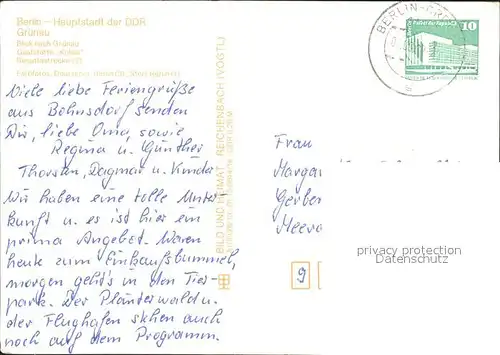 Berlin – Hauptstadt der DDR
Grünau
Blick nach Grünau
Gaststätte
Regattastrecke (2)
Viele liebe Feriengrüße
aus Bohnsdorf senden
Dir, liebe Oma, sowie
Regina u. Günther
Thorsten, Dagmar u. Kinder.
Wir haben eine tolle Unter-
kunft u. es ist hier ein
prima Angebot. Waren
heute zum Einkaufsbummel,
morgen geht's in den Tier-
park. Der Plänterwald u.
der Flughafen stehen auch
noch auf dem Programm.
BILD UND HEIMAT REICHENBACH (VOGTL)
BERLIN-GR
10
Frau
Margar
Gerber
Meera
9
privacy protection
Datenschutz